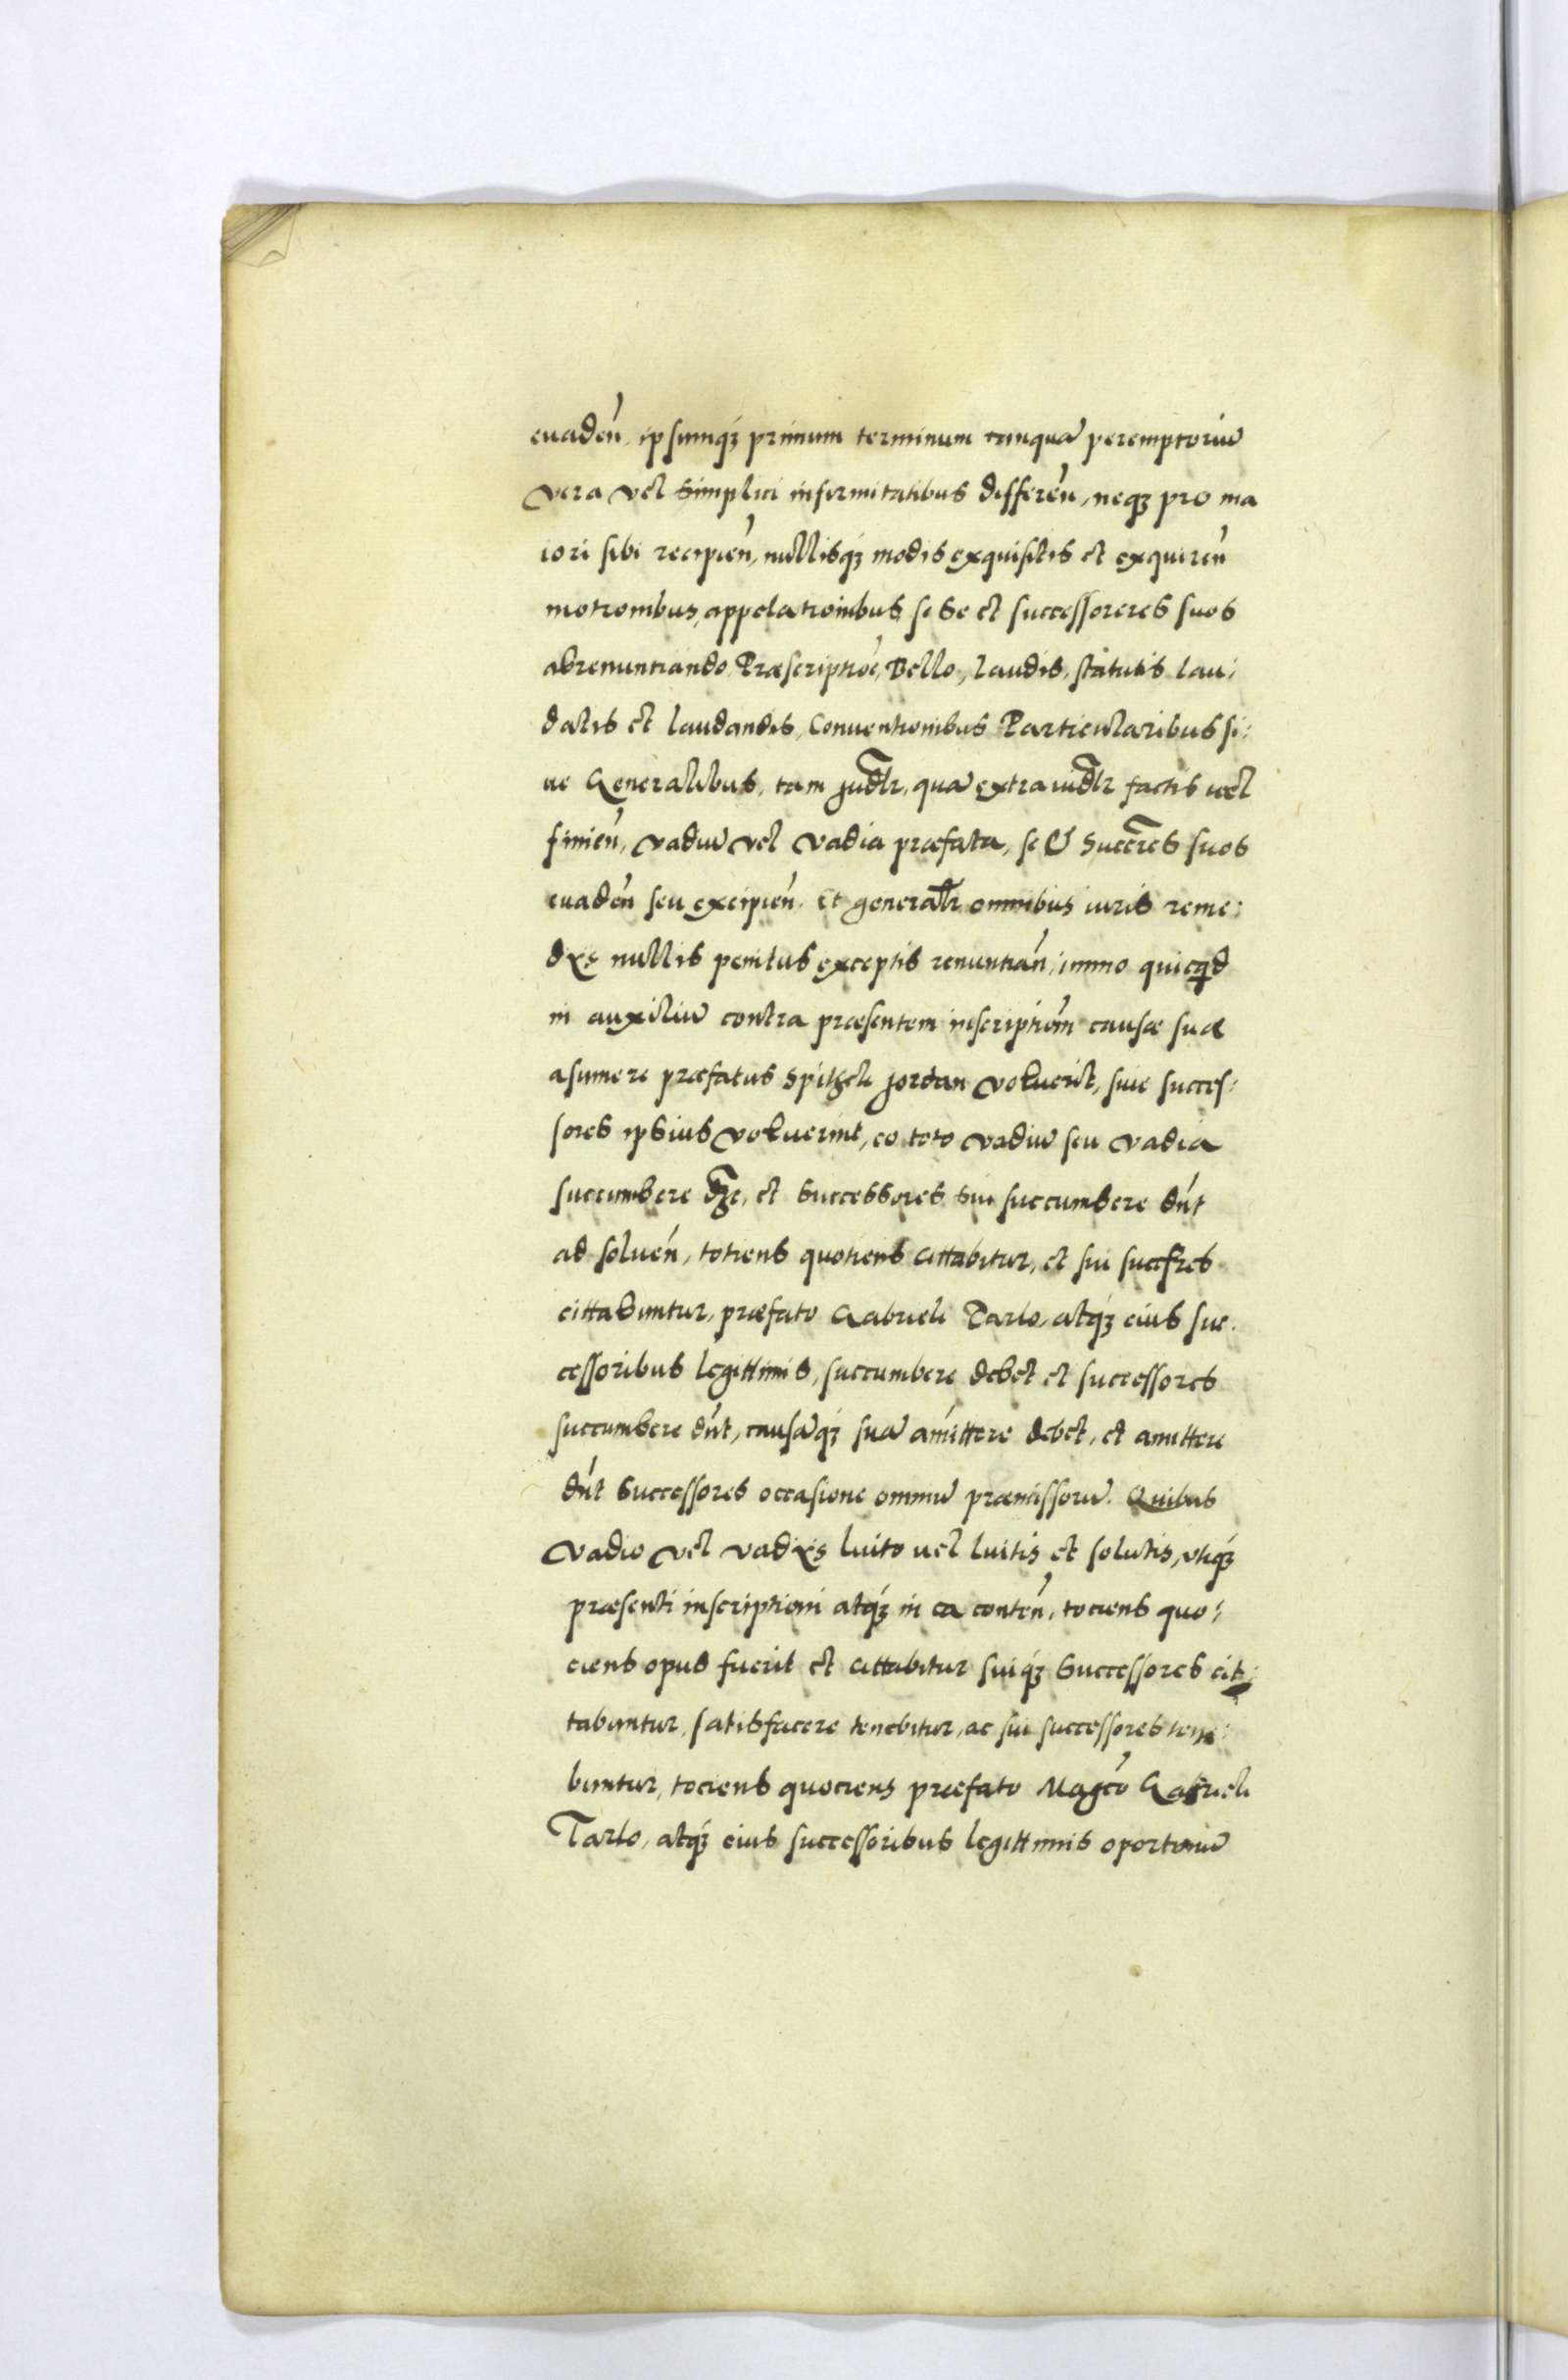 euaden̄, ipsumq́ꝫ primum terminum tanquā peremptoriū
vera vel simplici infirmitatibus differen̄, neqꝫ pro ma
iori sibi recipien̄, nullisq́ꝫ modis exquisitis et exquiren̄
motionibus, appelationibus se se et successoreres suos
abrenuntiando, Præscriptiōe, Bello, laudis, statutis lau:
datis et laudandis, Conuentionibus Particularibus si:
ue Generalibus, tam Jud̄lr, quā extraiud̄lr factis uel
finien̄, vadiū vel vadia præfata, se & Succ̄res suos
euaden̄ seu excipien̄. Et generalr̄ omnibus iuris reme:
dijs nullis penitus exceptis renuntian̄, immo quicqd
in auxiliū contra præsentem inscription̄ causæ suæ
asumere præfatus Spithek Jordan voluerit, siue succes:
sores ipsius voluerint, eo toto vadiū seu vadia
succumbere dꝫe, et Successores sui succumbere dn̄t
ad soluen̄, totiens quotiens cittabitur, et sui succr̄es
cittabuntur, præfato Gabrieli Tarlo, atq́ꝫ eius suc:
cessoribus legittimis, succumbere debet et successores
succumbere dn̄t, causāq́ꝫ suā amittere debet, et amittere
dn̄t Successores occasione omniū præmissorū. Quibus
Vadio vel vadijs luito uel luitis et solutis, vtiq́ꝫ
præsenti inscriptioni atq́ꝫ in ea conten̄, tociens quo:
ciens opus fuerit et cittabitur suiq́ꝫ Successores cit:
tabuntur, satisfacere tenebitur, ac sui successores tene:
buntur, tociens quociens præfato Magc̄o Gabrieli
Tarlo, atq́ꝫ eius successoribus legittimis oportunū